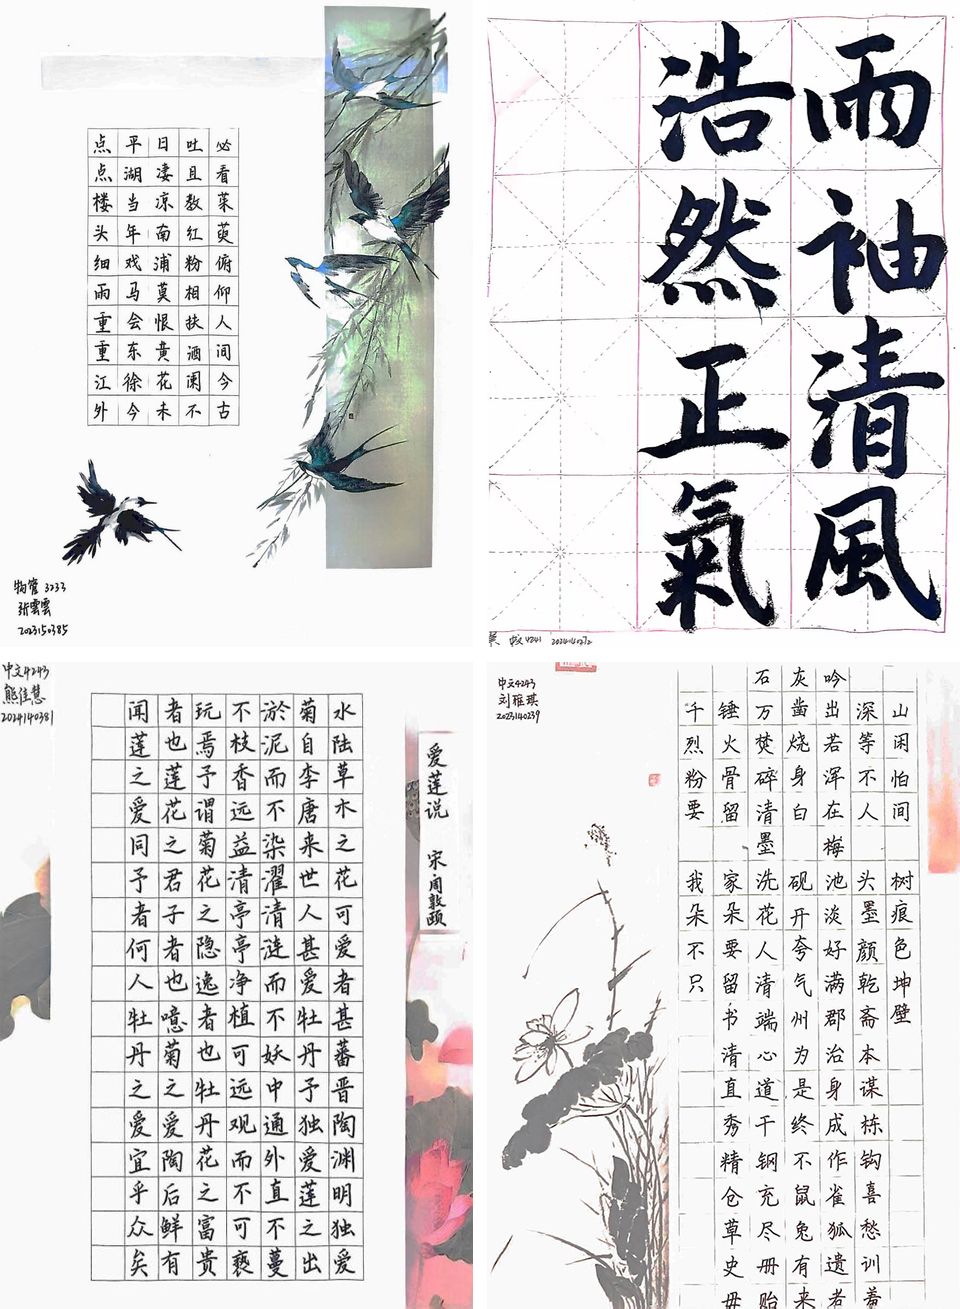 点点楼头细雨重重江外
平湖当年戏马会东徐今
日凄凉南浦莫恨黄花未
吐且教红粉相扶酒阑不
必看茱萸俯仰人间今古
物管3233
张雲雲
2023150385
雨袖清風
浩然正氣
中文4243
熊佳慧
2024140381
爱莲说 宋周敦颐
水陆草木之花可爱者甚蕃晋陶渊明独爱
菊自李唐来世人甚爱牡丹予独爱莲之出
淤泥而不染濯清涟而不妖中通外直不蔓
不枝香远益清亭亭净植可远观而不可亵
玩焉予谓菊花之隐逸者也牡丹花之富贵
者也莲花之君子者也噫菊之爱陶后鲜有
闻莲之爱同予者何人牡丹之爱宜乎众矣
中文4243
刘雅琪
2023140239
石灰吟
千锤万凿出深山
烈火焚烧若等闲
粉骨碎身浑不怕
要留清白在人间
墨梅
我家洗砚池头树
朵朵花开淡墨痕
不要人夸好颜色
只留清气满乾坤
书端州郡斋壁
清心为治本
直道是身谋
秀干终成栋
精钢不作钩
仓充鼠雀喜
草尽兔狐愁
史册有遗训
毋贻来者羞